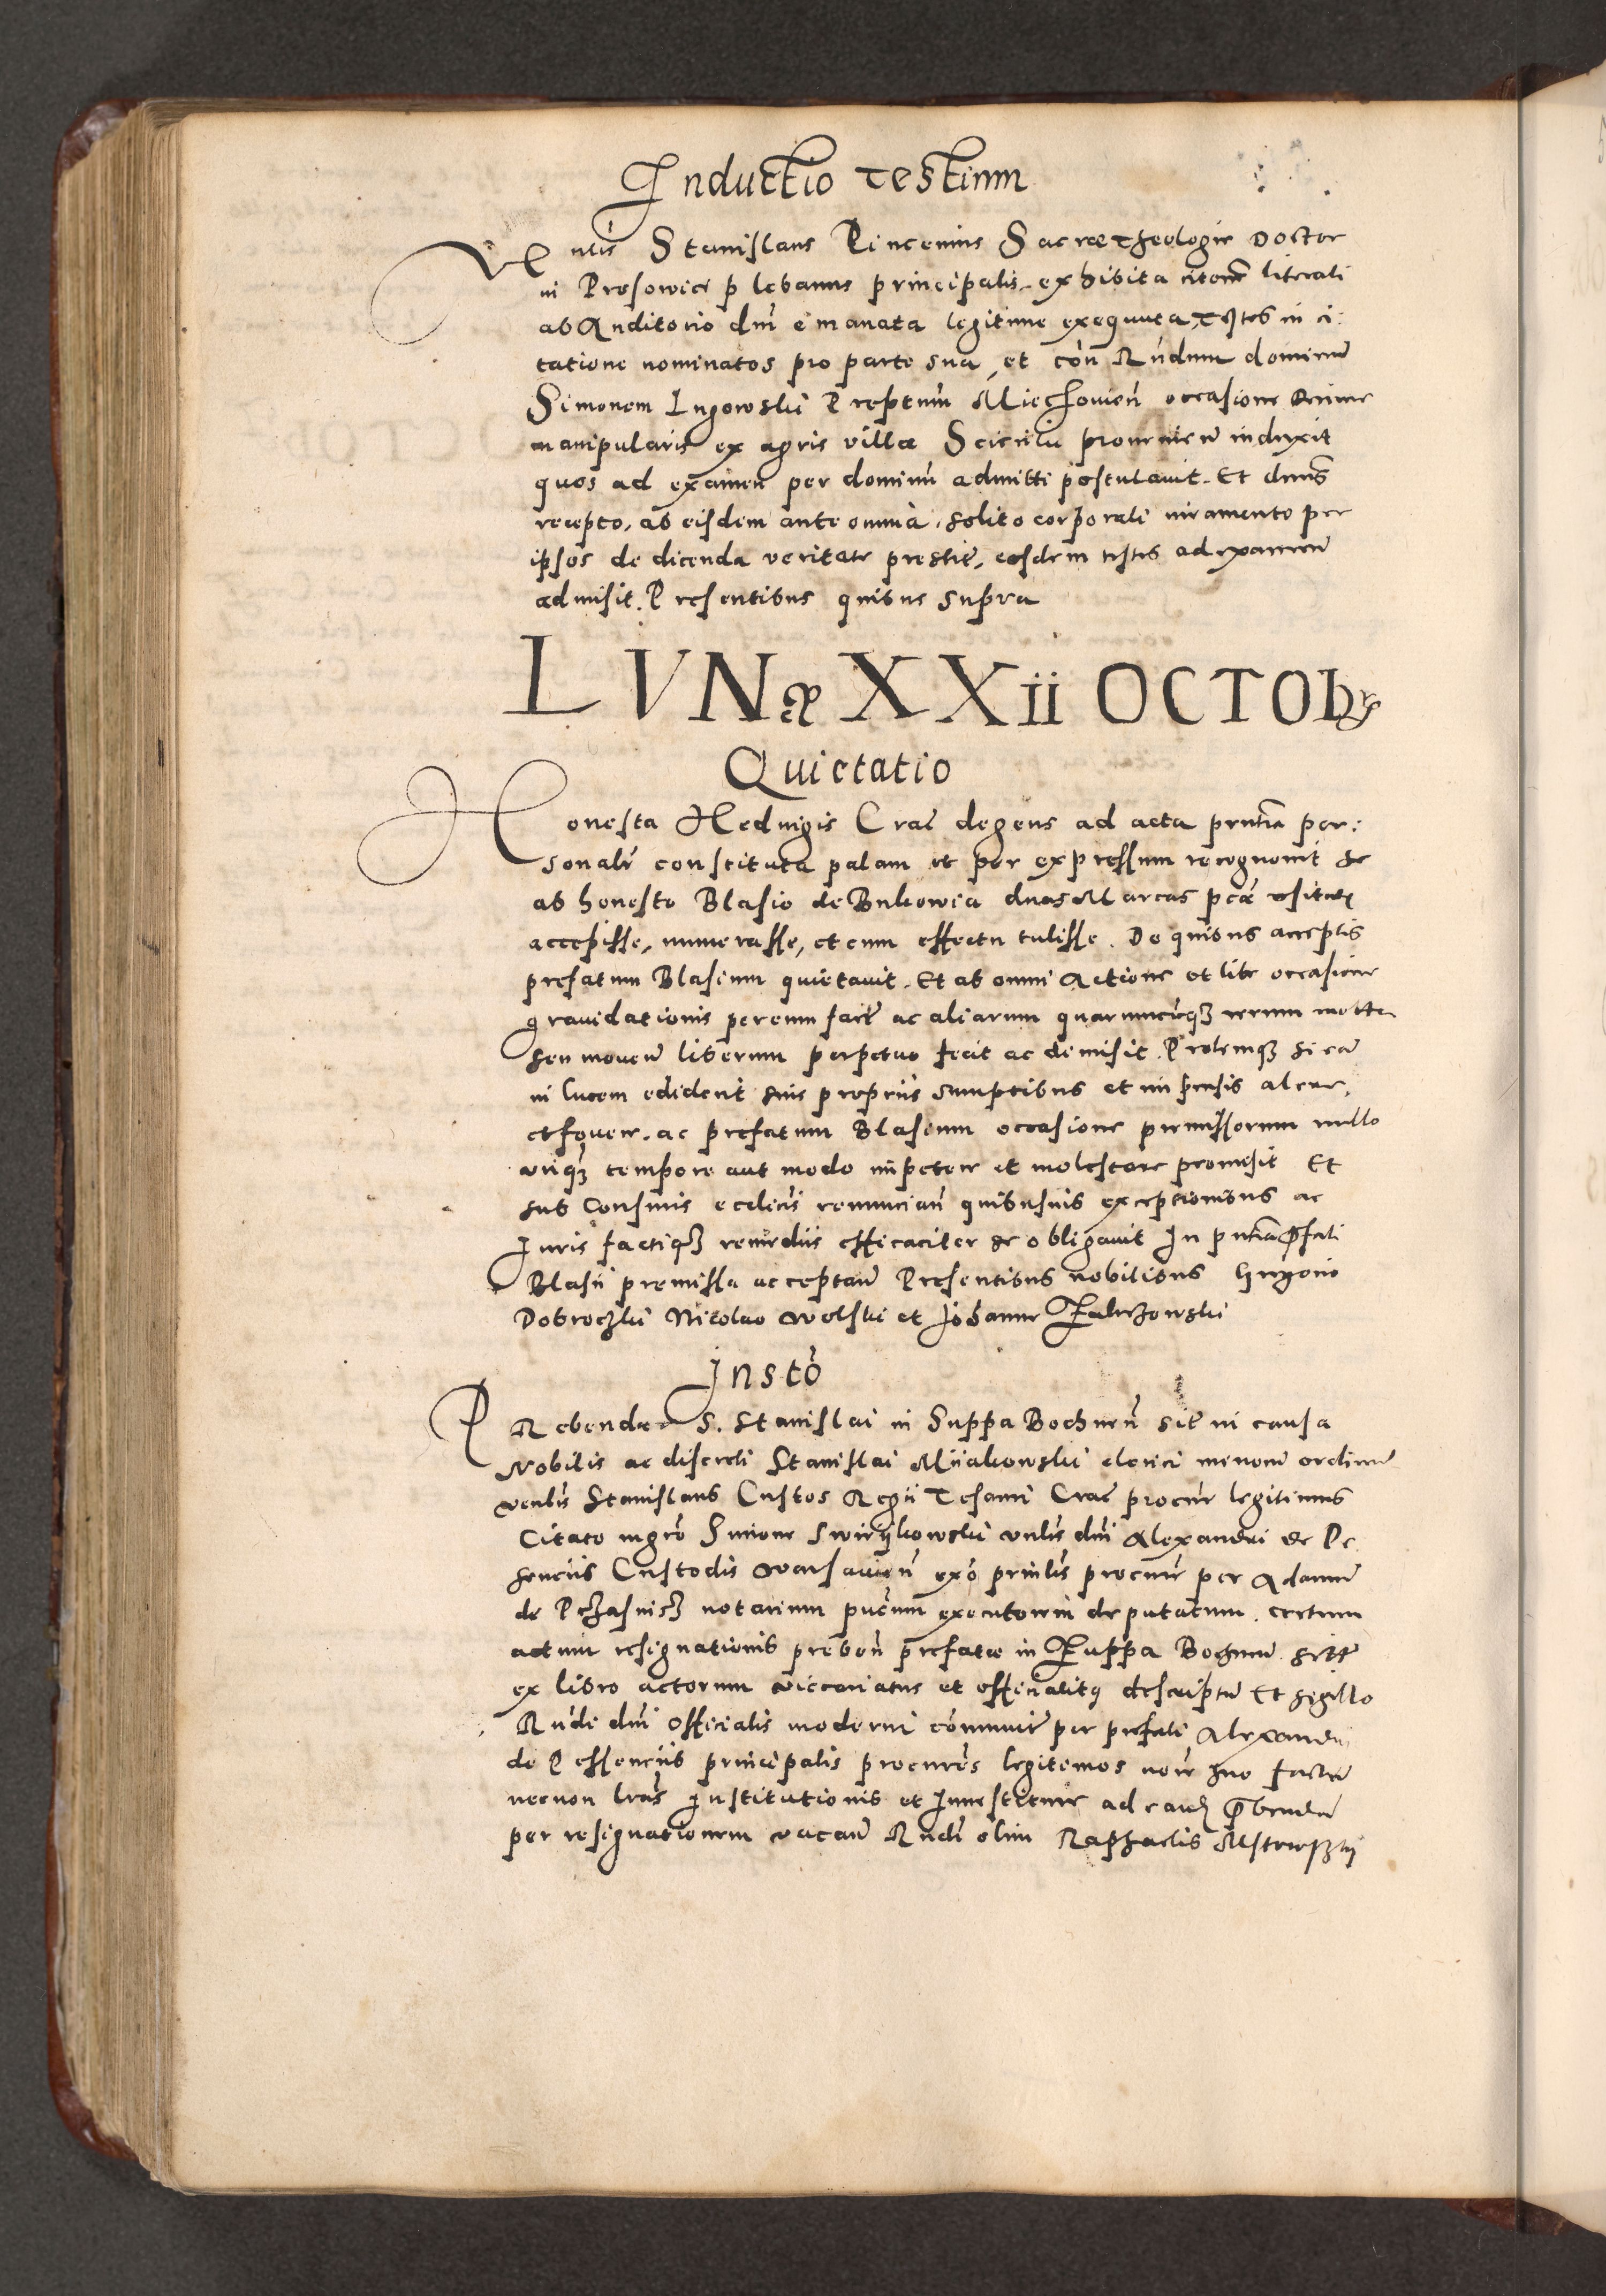 Inductio Testium
Vnlis Stanislaus Pincenius Sacrae Theologie Doctor
in Prosowice plebanus principalis exhibita citone literali
ab Auditorio dni emanata legitime exequuta, Testes in ci:
tatione nominatos pro parte sua, et con Rndum dominum
Simonem Lugowski Prepitum Miechovien occasione decime
manipularis ex agris villae provenien induxit
quos ad examen per dominum admitti postulavit. Et dnus
recepto, ab eisdem ante omnia, solito corporali iuramento per
ipsos de dicenda veritate prestit, eosdem testes ad examen
admisit. Presentibus quibus supra
LVNæ XXii OCTObr
Quietatio
Honesta Hedvigis Crac degens ad acta prntia per:
sonalr constituta palam et per expressum recognovit se
ab honesto Blasio de Bukowia duas Marcas pcae usitate
accepisse, numerasse, et cum effectu tulisse. De quibus acceptis
prefatum Blasium quietavit. Et ab omni Actione et lite occasione
gravidationis per eum facte ac aliarum quarumcunqz rerum mota
seu moven liberum perpetuo fecit ac dimisit. Prolemqz si eam
in lucem ediderit suis propriis sumptibus et impensis alere,
et fovere. ac prefatum Blasium occasione premissorum nullo
unqz tempore aut modo impetere et molestare promisit Et
sub Censuris ecclicis renuncian quibusvis exceptionibus ac
Iuris factiqz remediis efficaciter se obligavit In pntia prefati
Blasii premissa acceptan Presentibus nobilibus Gregorio
Dobroczki Nicolao Wolski et Iohanne Zakrzowski
Insto
PRebendae S. Stanislai in Suppa Bochnen sit in causa
Nobilis ac discreti Stanislai Miiakowski clerici minorum ordinum
venlis Stanislaus Custos Regii Tesauri Crac procur legitimus
Citato mgro Simone vnlis dni Alexandri de Pe
senciis Custodis Varsavien exo prinlis procur per Adamum
de notarium pucum executorem deputatum. certum
actum resignationis preben prefatae in Zuppa Bochnen sitt
ex libro actorum vicecariatus et officialitq descriptum Et sigillo
Rndi dni Officialis moderni communit per prefati Alexandri
de Pessenciis principalis procures legitimos noie suo factum
necnon lras Institutionis et Investiture ad eand prebendam
per resignationem vacan Rndi olim Raphaelis